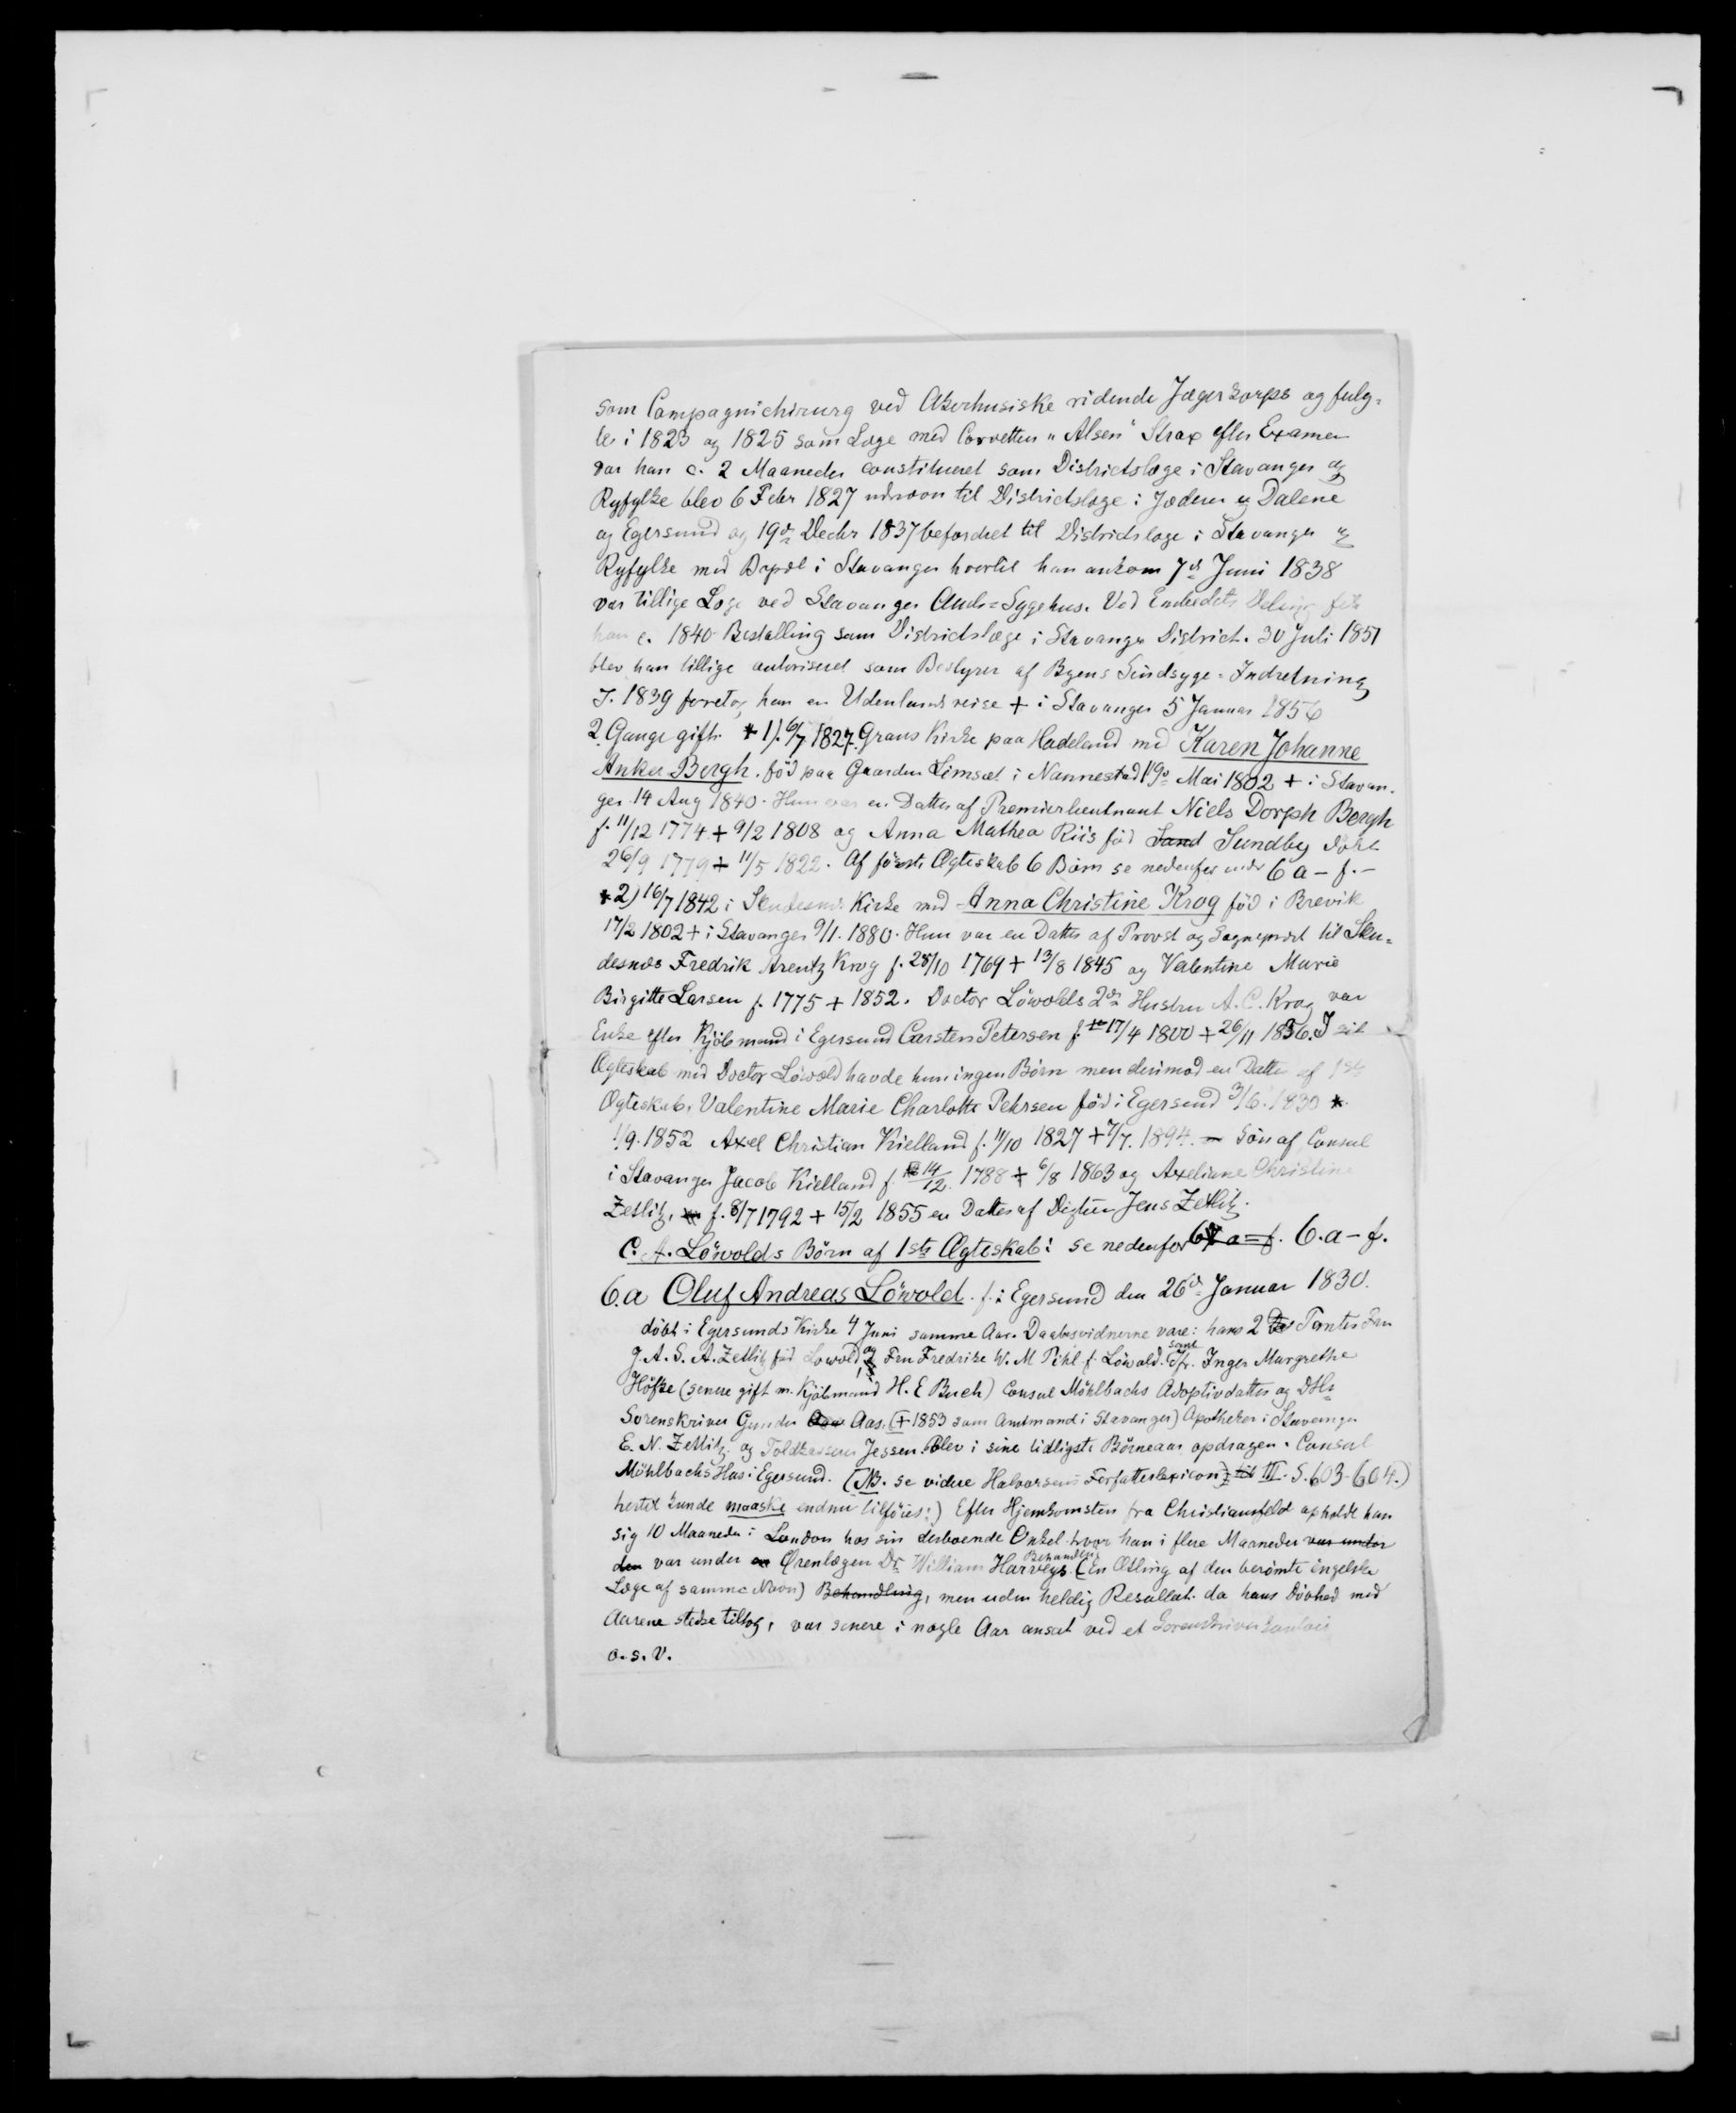 som Compagnichirurg ved Akerhusiske ridende Jægerkorps og fulg=
te i 1823 og 1825 som Læge med Corvetten "Alsen" Strax efter Examen
var han c. 2 Maaneder constitueret som Districtslæge i Stavanger og
Ryfylke blev 6 Febr 1827 udnævn til Districtslæge i Jæderen og Dalene
og Egersund og 19de Decbr 1837 befordret til Districtslæge i Stavanger og
Ryfylke med Bopæl i Stavanger hvortil han ankom 7de Juni 1838
var tillige Læge ved Stavanger Amts=Sygehus. Ved Embedets Deling fik
han c. 1840 Bestalling som Districtslæge i Stavanger District. 30 Juli 1851
blev han tillige autoriseret som Bestyrer af Byens Sindsyge=Indretning
I. 1839 foretog han en Udenlandsreise + i Stavanger 5 Januar 1856
2 Gange gift. * 1). 6/7 1827. Grans Kirke paa Hadeland med Karen Johanne
Anker Bergh. fød paa Gaarden Limsæt i Nannestad 19de Mai 1802 + i Stavan=
ger 14 Aug 1840. Hun var en Datter af Premierlieutnant Niels Dorph Bergh
f. 11/12 1774 + 9/2 1808 og Anna Mathea Riis fød Sand Sundby døbt
26/9 1779 + 11/5 1822. Af første Ægteskab 6 Børn se nedenfor under 6 a – f. –
* 2) 16/7 1842 i Skudesnes Kirke med Anna Christine Krog fød i Brevik
17/2 1802 + i Stavanger 9/1. 1880. Hun var en Datter af Provst og Sogneprest til Sku=
desnæs Fredrik Arentz Krog f. 28/10 1769 + 13/8 1845 og Valentine Marie
Birgitte Larsen f. 1775 + 1852. Doctor Löwolds 2den Hustru A. C. Krog var
Enke efter Kjöbmand i Egersund Carsten Petersen f. 17/4 1800 + 26/11 1836. I sit
Ægteskab med Doctor Löwold havde hun ingen Börn men derimod en Datter af 1ste
Ægteskab, Valentine Marie Charlotte Petersen född i Egersund 3/6. 1830 *
1/9. 1852 Axel Christian Kielland f. 11/10 1827 + 7/7. 1894. – Sön af Consul
i Stavanger Jacob Kielland f. 14/12. 1788 + 6/8 1863 og Axeliane Christine
Zetlitz, f. 8/7 1792 + 15/2 1855 en Datter af Digteren Jens Zetlitz.
C. A. Löwolds Börn af 1ste Ægteskab: se nedenfor 6 a=f. 6.a – f.
6.a Oluf Andreas Löwold. f. i Egersund den 26de Januar 1830.
döbt i Egersunds Kirke 4 Juni samme Aar. Daabsvidnerne vare: hans 2 Tanter Fru
J. A. S. A. Zetlitz fød Lowold, og Fru Fredrike W. M Pihl f. Löwold. samt Jfr. Inger Margrethe
Höfke (senere gift m. Kjöbmand H. E Buch) Consul Möhlbachs Adoptivdatter og DHr
Sorenskriver Gunder Aas. (+ 1853 som Amtmand i Stavanger) Apotheker i Stavanger
E. N. Zetlitz. og Toldkasserer Jessen. Blev i sine tidligste Börneaar opdragen i Consul
Möhlbachs Hus i Egersund. (NB. se videre Halvorsens Forfatterlexicon) III. S. 603-604.)
hertil kunde maaske endnu tilføies:) Efter Hjemkomsten fra Christiansfeldt opholdt han
sig 10 Maaneder i London hos sin derboende Onkel hvor han i flere Maaneder var under
den var under en Ørenlægen Dr William Harveys Behandling (En Ætling af den berömte engelske
Læge af samme Navn) Behandling, men uden heldig Resultat. da hans Dövhed med
Aarene stedse tiltog, var senere i nogle Aar ansat ved et Sorenskriverkontoir
o. s. v.